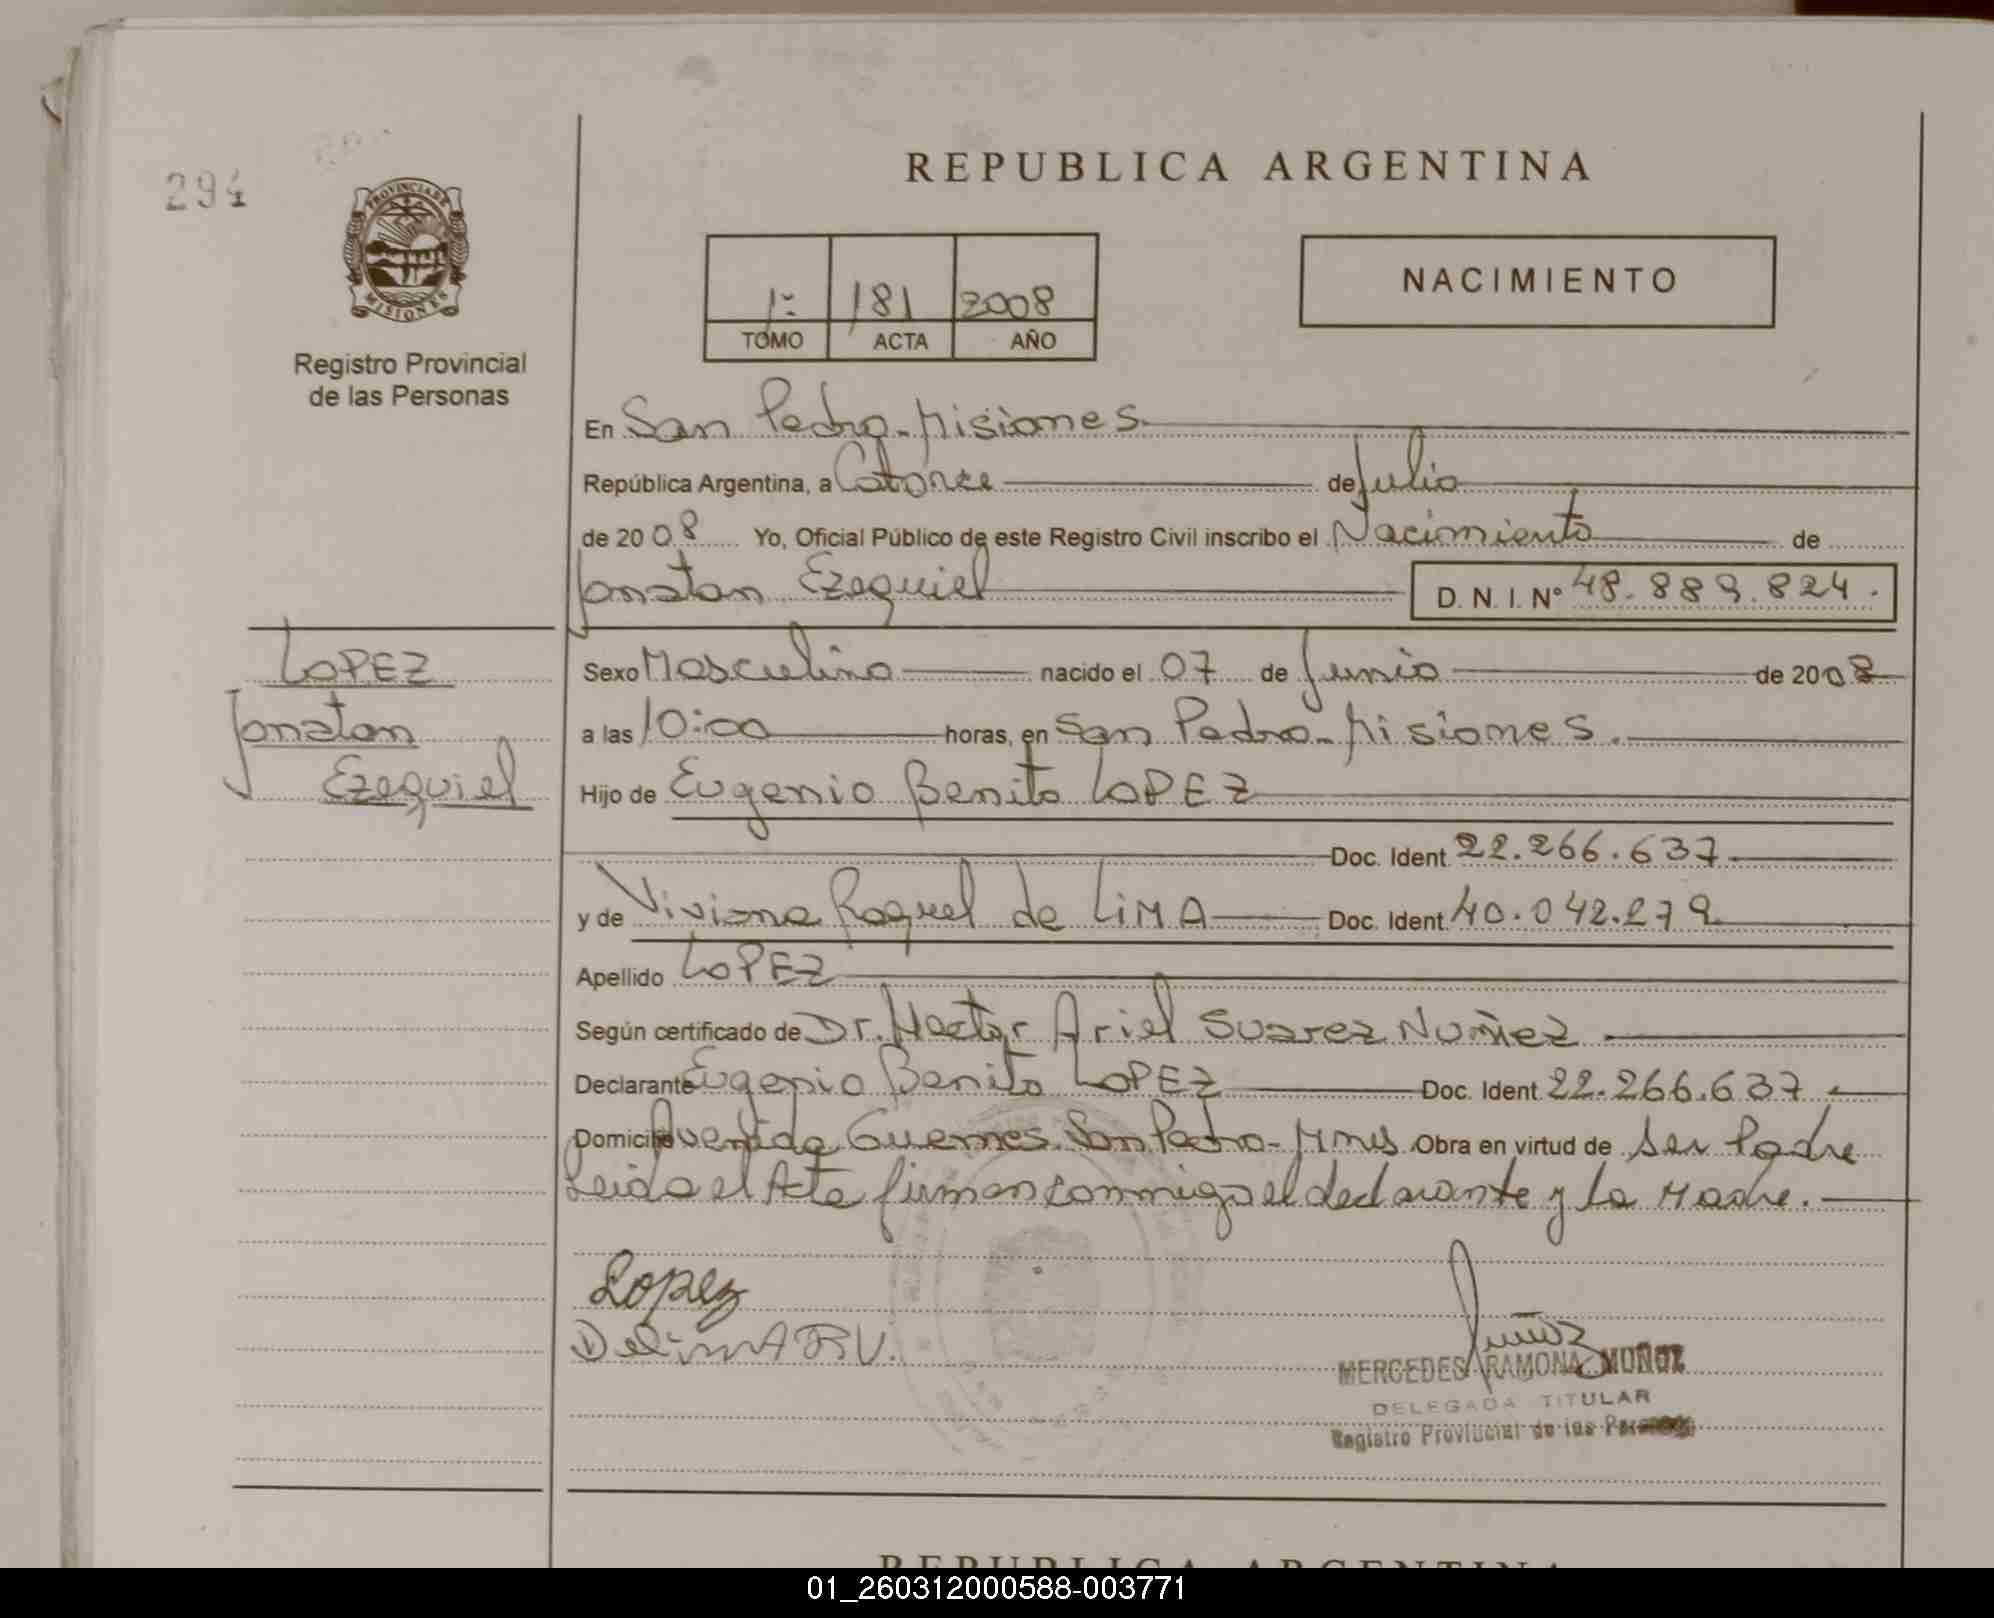 294
REPUBLICA ARGENTINA
PROVINCIA DE
MISIONES
Registro Provincial
de las Personas
1º 181 2008
TOMO ACTA AÑO
NACIMIENTO
En San Pedro-Misiones
República Argentina, a Catorce de Julio
de 2008 Yo, Oficial Público de este Registro Civil inscribo el Nacimiento de
Jonatan Ezequiel D. N. I. Nº 48.889.824.
LOPEZ
Jonatan
Ezequiel
Sexo Masculino nacido el 07 de Junio de 2008
a las 10:00 horas, en San Pedro-Misiones.
Hijo de Eugenio Benito LOPEZ
Doc. Ident. 22.266.637
y de Viviana Raquel de LiMA Doc. Ident. 40.042.279
Apellido LOPEZ
Según certificado de Dr. Hector Ariel Suarez Nuñez
Declarante Eugenio Benito LOPEZ Doc. Ident. 22.266.637
Domicilio Avenida Guemes. San Pedro-Mnes. Obra en virtud de ser Padre
Leida el Acta firman conmigo el declarante y la Madre.
Lopez
DelimA RV.
Muñoz
MERCEDES RAMONA MUÑOZ
DELEGADA TITULAR
Registro Provincial de las Personas
REPUBLICA ARGENTINA
01_260312000588-003771